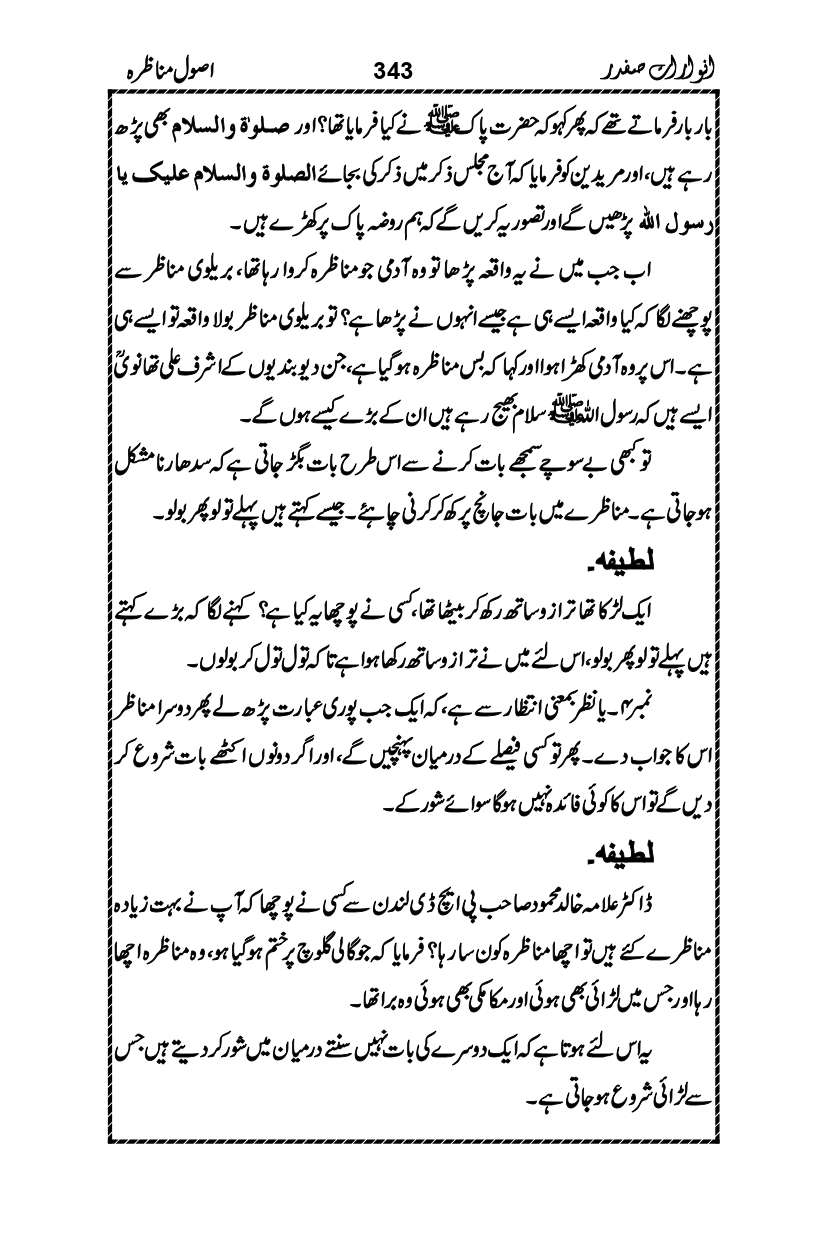 انوارات صفدر 343 اصول مناظرہ
بار بار فرماتے تھے کہ پھر کہو کہ حضرت پاک ﷺ نے کیا فرمایا تھا؟ اور صلوٰۃ والسلام بھی پڑھ
رہے ہیں، اور مریدین کو فرمایا کہ آج مجلس ذکر میں ذکر کی بجائے الصلوۃ والسلام علیک یا
رسول اللہ پڑھیں گے اور تصور یہ کریں گے کہ ہم روضہ پاک پر کھڑے ہیں۔
اب جب میں نے یہ واقعہ پڑھا تو وہ آدمی جو مناظرہ کروا رہا تھا، بریلوی مناظر سے
پوچھنے لگا کہ کیا واقعہ ایسے ہی ہے جیسے انہوں نے پڑھا ہے؟ تو بریلوی مناظر بولا واقعہ تو ایسے ہی
ہے۔ اس پر وہ آدمی کھڑا ہوا اور کہا کہ بس مناظرہ ہو گیا ہے، جن دیوبندیوں کے اشرف علی تھانویؒ
ایسے ہیں کہ رسول اللہ ﷺ سلام بھیج رہے ہیں ان کے بڑے کیسے ہوں گے۔
تو کبھی بے سوچے سمجھے بات کرنے سے اس طرح بات بگڑ جاتی ہے کہ سدھارنا مشکل
ہو جاتی ہے۔ مناظرے میں بات جانچ پرکھ کر کرنی چاہئے۔ جیسے کہتے ہیں پہلے تولو پھر بولو۔
لطیفہ۔
ایک لڑکا تھا ترازو ساتھ رکھ کر بیٹھا تھا، کسی نے پوچھا یہ کیا ہے؟ کہنے لگا کہ بڑے کہتے
ہیں پہلے تولو پھر بولو، اس لئے میں نے ترازو ساتھ رکھا ہوا ہے تاکہ تول تول کر بولوں۔
نمبر ۴۔ یا نظر بمعنی انتظار سے ہے، کہ ایک جب پوری عبارت پڑھ لے پھر دوسرا مناظر
اس کا جواب دے۔ پھر تو کسی فیصلے کے درمیان پہنچیں گے، اور اگر دونوں اکٹھے بات شروع کر
دیں گے تو اس کا کوئی فائدہ نہیں ہوگا سوائے شور کے۔
لطیفہ۔
ڈاکٹر علامہ خالد محمود صاحب پی ایچ ڈی لندن سے کسی نے پوچھا کہ آپ نے بہت زیادہ
مناظرے کئے ہیں تو اچھا مناظرہ کون سا رہا؟ فرمایا کہ جو گالی گلوچ پر ختم ہو گیا ہو، وہ مناظرہ اچھا
رہا اور جس میں لڑائی بھی ہوئی اور مکا مکی بھی ہوئی وہ برا تھا۔
یہ اس لئے ہوتا ہے کہ ایک دوسرے کی بات نہیں سنتے درمیان میں شور کر دیتے ہیں جس
سے لڑائی شروع ہو جاتی ہے۔